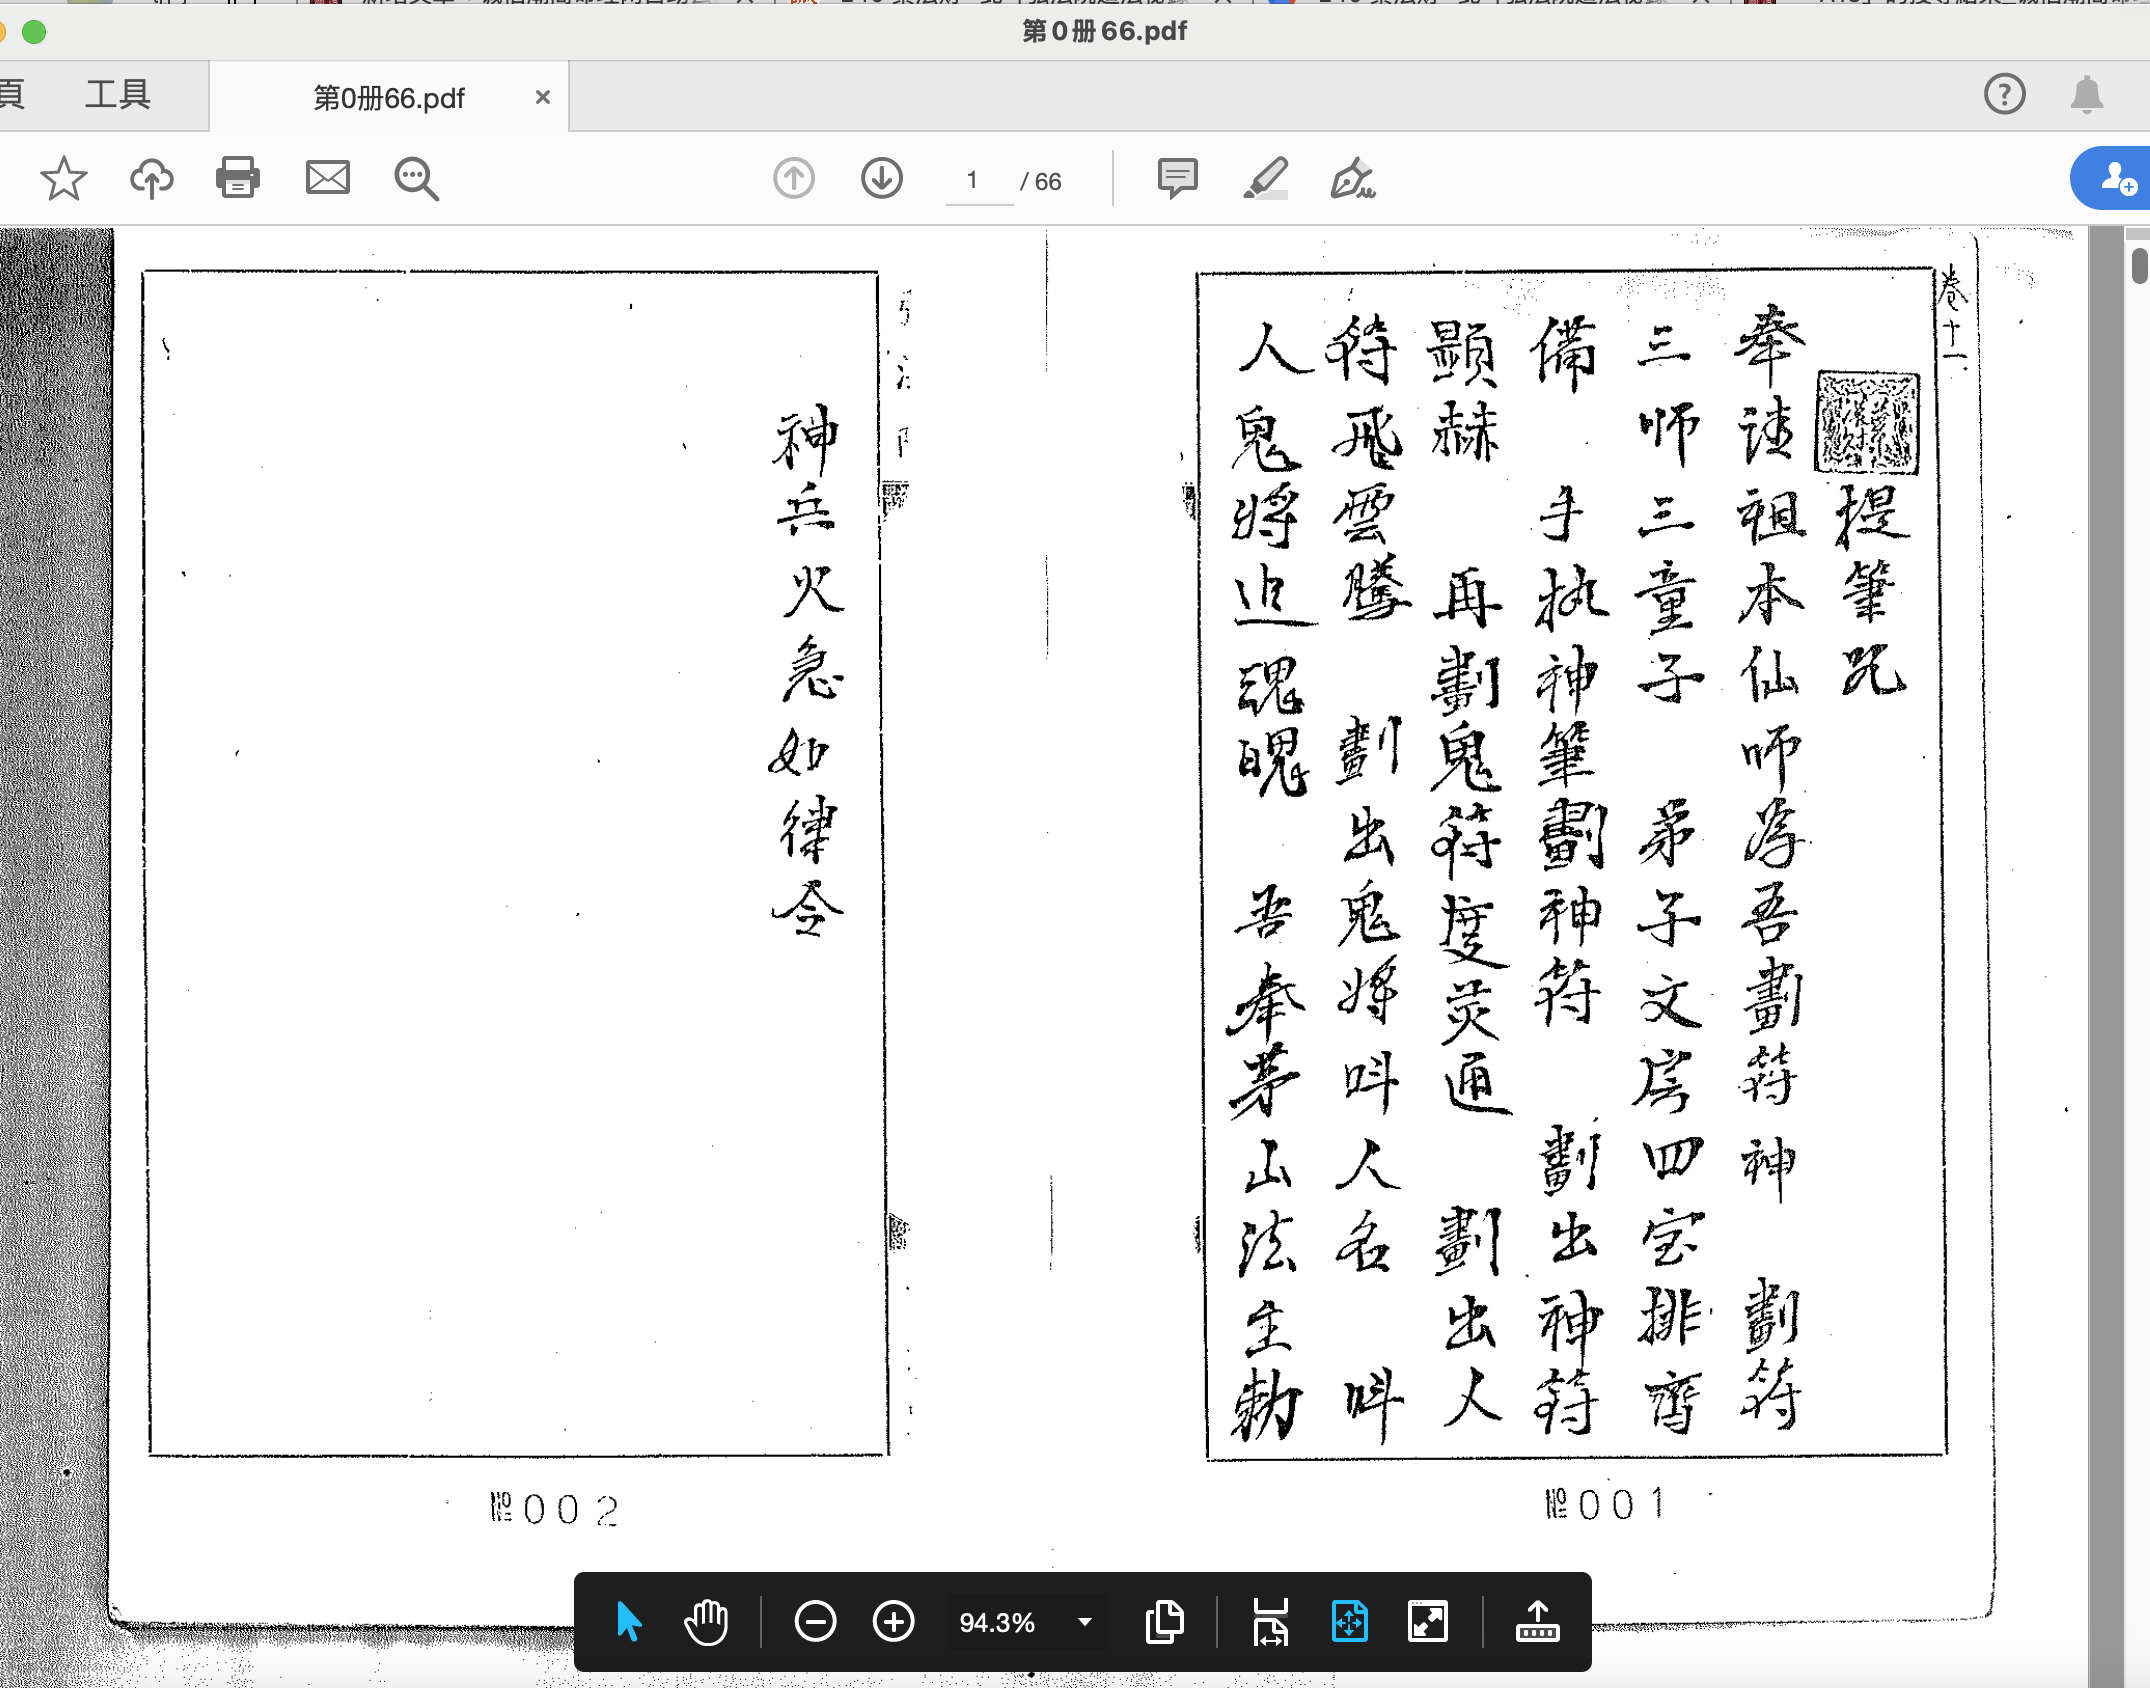 第0册66.pdf
工具
第0册66.pdf
1 / 66
卷十一
提筆咒
奉請祖本仙师為吾劃符神 劃符
三师三童子 弟子文房四宝排齊
備 手执神筆劃神符 劃出神符
顯赫 再劃鬼符度灵通 劃出人
符飛雲騰 劃出鬼将叫人名 叫
人鬼將追魂魄 吾奉茅山法主勅
№001
神兵火急如律令
№002
94.3%